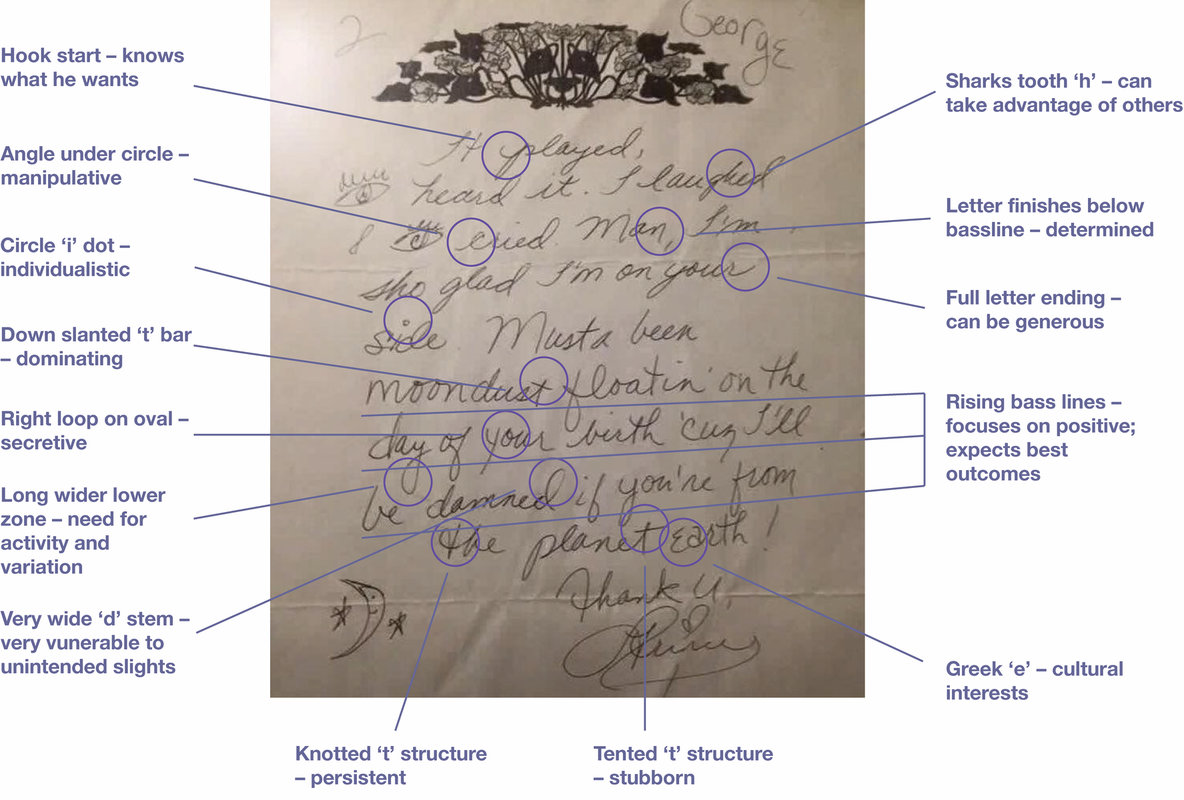 2
George
Hook start – knows
what he wants
Angle under circle –
manipulative
Circle ‘i’ dot –
individualistic
Down slanted ‘t’ bar
– dominating
Right loop on oval –
secretive
Long wider lower
zone – need for
activity and
variation
Very wide ‘d’ stem –
very vunerable to
unintended slights
It played,
heard it. I laughed
& cried. Man, I'm
sho glad I'm on your
side. Musta been
moondust floatin' on the
day of your birth 'cuz I'll
be damned if you're from
the planet Earth!
Thank U,
Sharks tooth ‘h’ – can
take advantage of others
Letter finishes below
bassline – determined
Full letter ending –
can be generous
Rising bass lines –
focuses on positive;
expects best
outcomes
Greek ‘e’ – cultural
interests
Knotted ‘t’ structure
– persistent
Tented ‘t’ structure
– stubborn